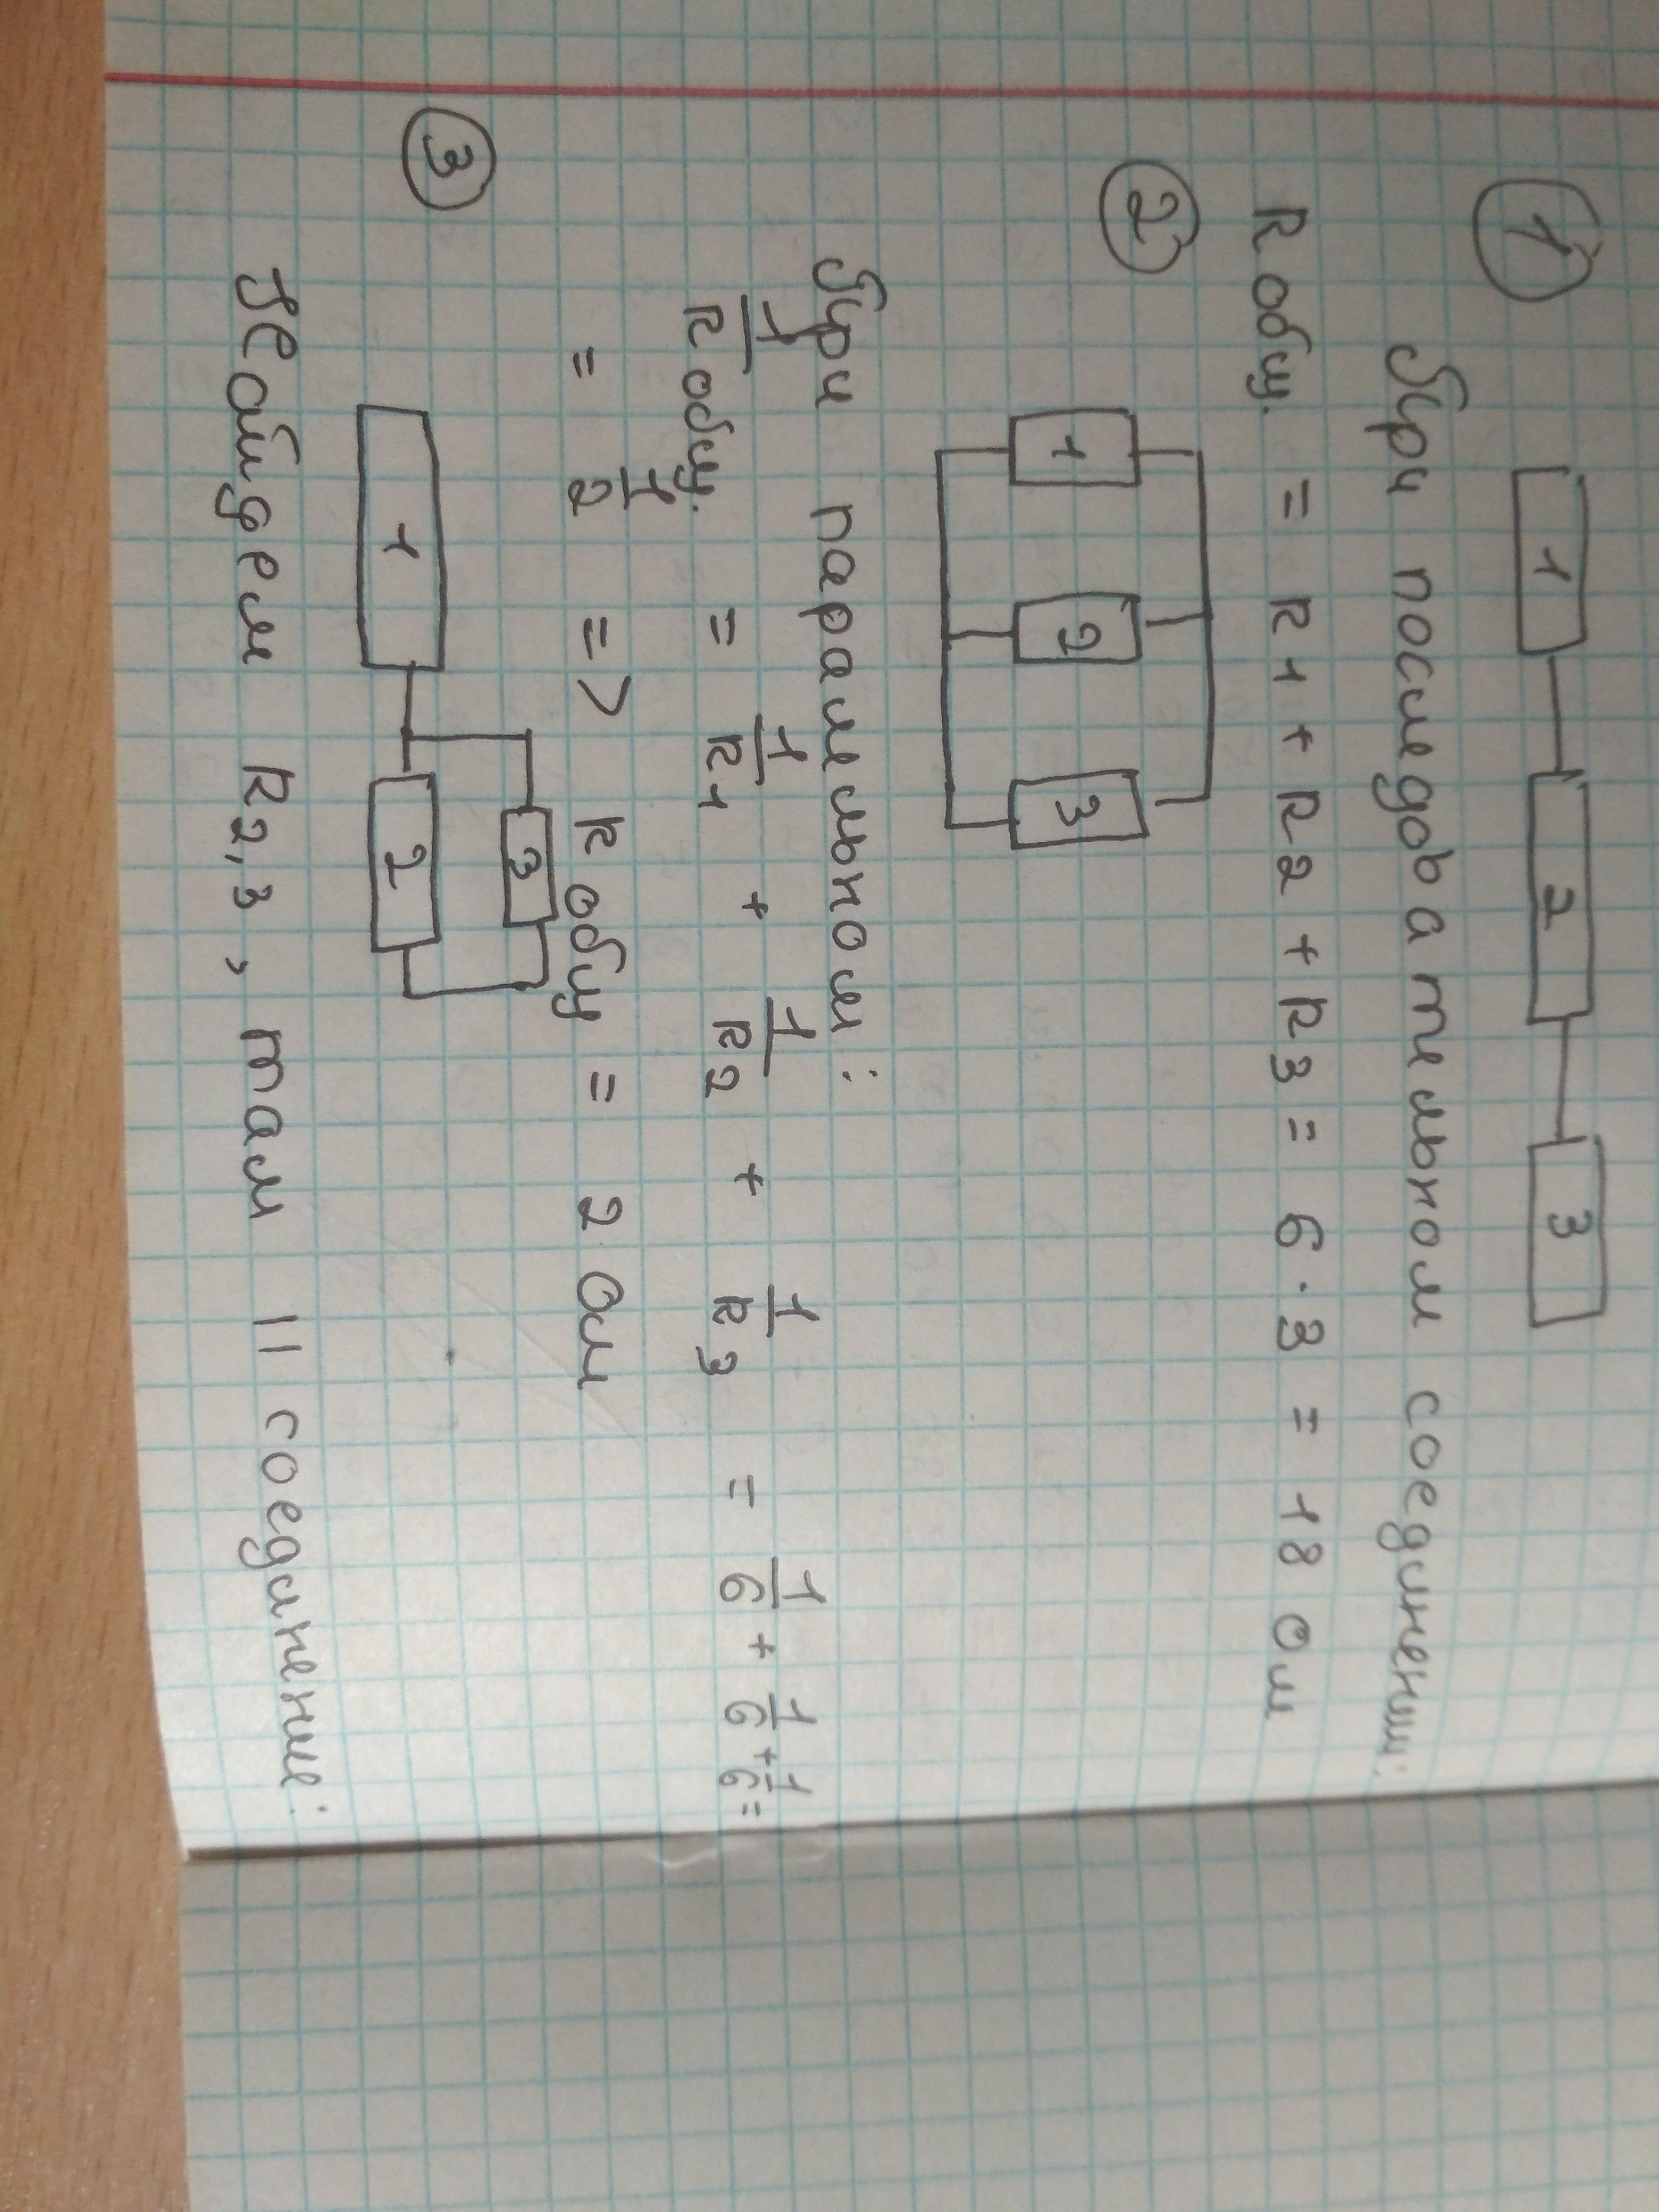 ①
1 2 3
При последовательном соединении:
R общ. = R1 + R2 + R3 = 6 · 3 = 18 Ом
②
1 2 3
При паралельном:
1/R общ. = 1/R1 + 1/R2 + 1/R3 = 1/6 + 1/6 + 1/6 =
= 1/2 => R общ = 2 Ом
③
3
1 2
Найдем R2,3, там || соединение: